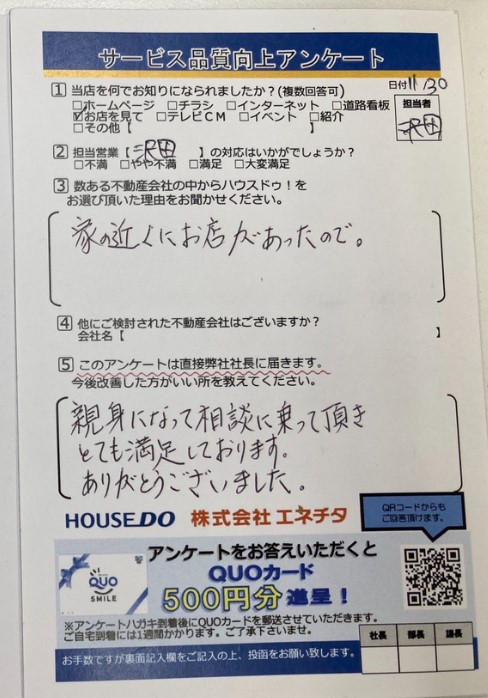 サービス品質向上アンケート
1 当店を何でお知りになられましたか?(複数回答可) 日付11/30
□ホームページ □チラシ □インターネット □道路看板 担当者
☑お店を見て □テレビCM □イベント □紹介 沢田
□その他【 】
2 担当営業【沢田】の対応はいかがでしょうか?
□不満 □やや不満 □満足 □大変満足
3 数ある不動産会社の中からハウスドゥ!を
お選び頂いた理由をお聞かせください。
家の近くにお店があったので。
4 他にご検討された不動産会社はございますか?
会社名【 】
5 このアンケートは直接弊社社長に届きます。
今後改善した方がいい所を教えてください。
親身になって相談に乗って頂き
とても満足しております。
ありがとうございました。
HOUSEDO 株式会社 エネチタ
QRコードからも
ご回答頂けます。
アンケートをお答えいただくと
QUOカード
500円分進呈!
QUO
SMILE
※アンケートハガキ到着後にQUOカードを郵送させていただきます。
ご自宅到着には1週間かかります。ご了承下さいませ。
社長 部長 課長
お手数ですが裏面記入欄をご記入の上、投函をお願い致します。